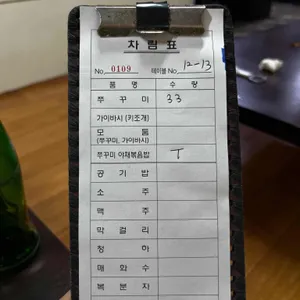 차림표
No. 0109 테이블 No. 12-13
품 명 수 량
쭈 꾸 미 33
가이바시 (키조개)
모 둠
(쭈꾸미, 가이바시)
쭈꾸미 야채볶음밥 T
공 기 밥
소 주
맥 주
막 걸 리
청 하
매 화 수
복 분 자